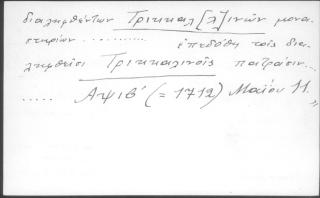 διαληφθέντων Τρικκαλ[λ]ινῶν μονα-
στηρίων . . . . . . . . . . ἐπεδόθη τοῖς δια-
ληφθεῖσι Τρικκαλινοῖς πατράσιν...
..... ΑΨΙΒ´ (= 1712) Μαΐου 11.»